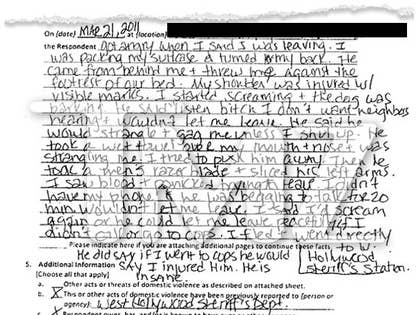 On (date) MAR 21, 2011 at (location)
the Respondent got angry when I said I was leaving. I
was packing my suitcase & turned my back. He
came from behind me & threw me against the
footrest of our bed. My shoulder was injured w/
visible marks. I started screaming & the dog was
barking. He said listen bitch I don't want neighbors
hearing & wouldn't let me leave. He said he
would strangle & gag me unless I shut up. He
took a wet towel over my mouth & nose & was
strangling me. I tried to push him away. Then he
took a men's razor blade & sliced his left arms.
I saw blood & panicked trying to leave. I didn't
have my phone & he was begging to talk for 20
min. wouldn't let me leave. said I'd scream
again or he could let me leave peacefully if I
didn't call or go to cops. I fled & went directly
Please indicate here if you are attaching additional pages to continue these facts to W.
He did say if I went to cops he would Hollywood
5. Additional Information say I injured Him. He is Sheriff's Station.
[Choose all that apply] insane.
a. Other acts or threats of domestic violence as described on attached sheet.
b. X This or other acts of domestic violence have been previously reported to [person or
agency]: West Hollywood Sheriff's Dept.